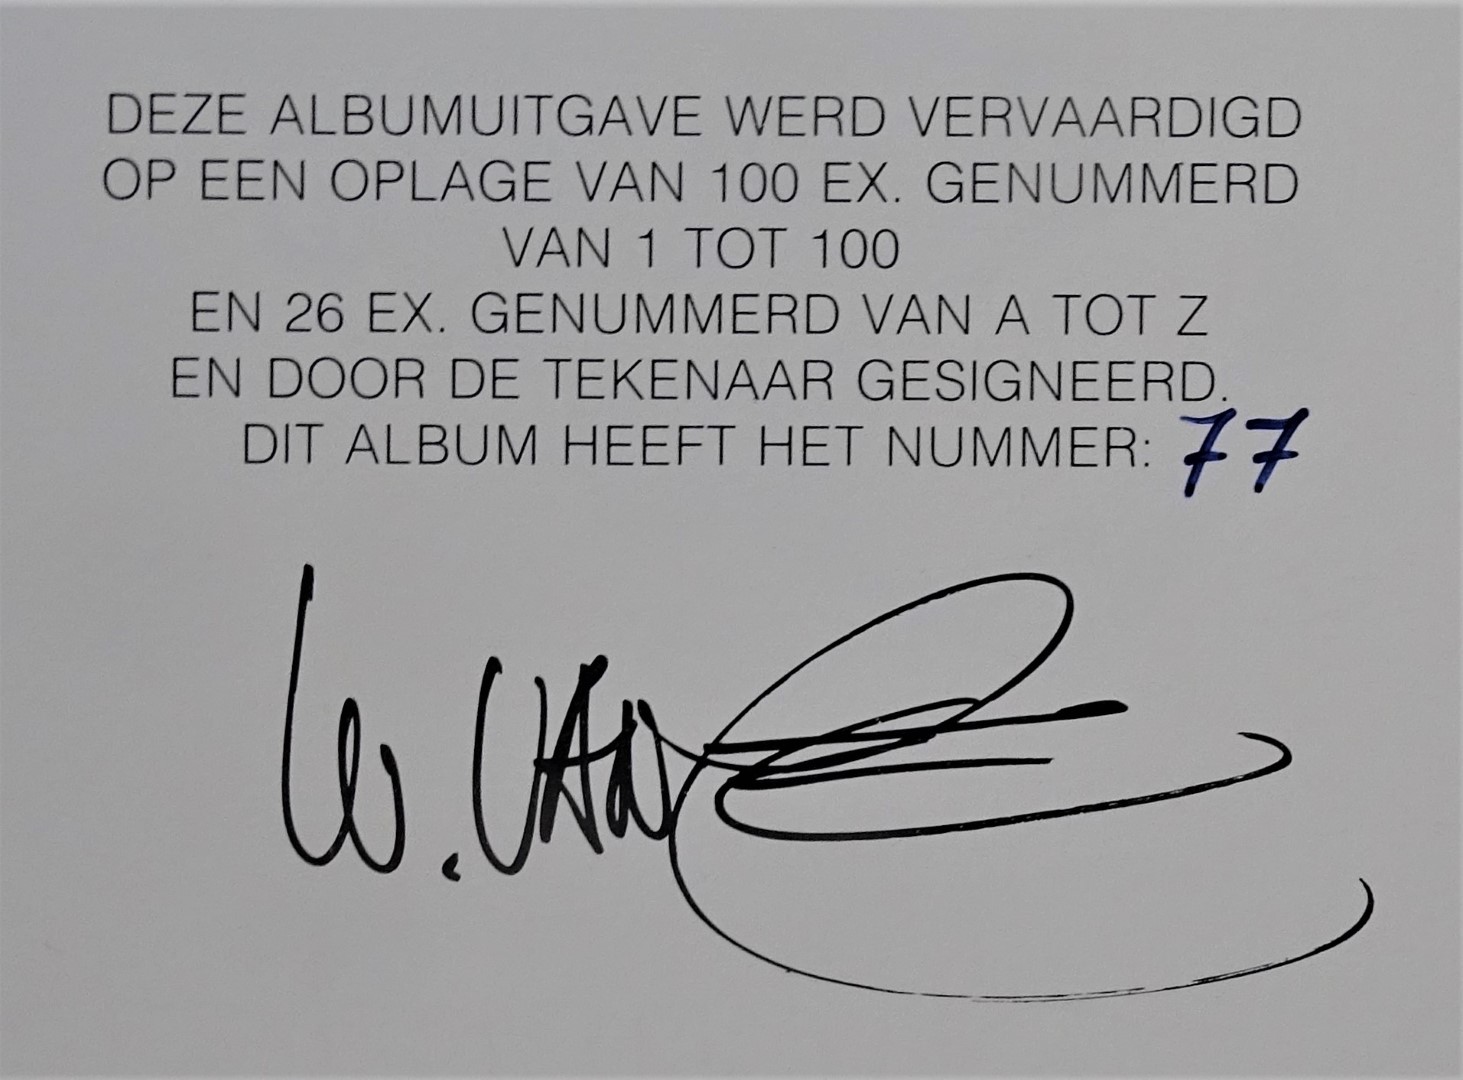 DEZE ALBUMUITGAVE WERD VERVAARDIGD
OP EEN OPLAGE VAN 100 EX. GENUMMERD
VAN 1 TOT 100
EN 26 EX. GENUMMERD VAN A TOT Z
EN DOOR DE TEKENAAR GESIGNEERD.
DIT ALBUM HEEFT HET NUMMER: 77
W. VAN